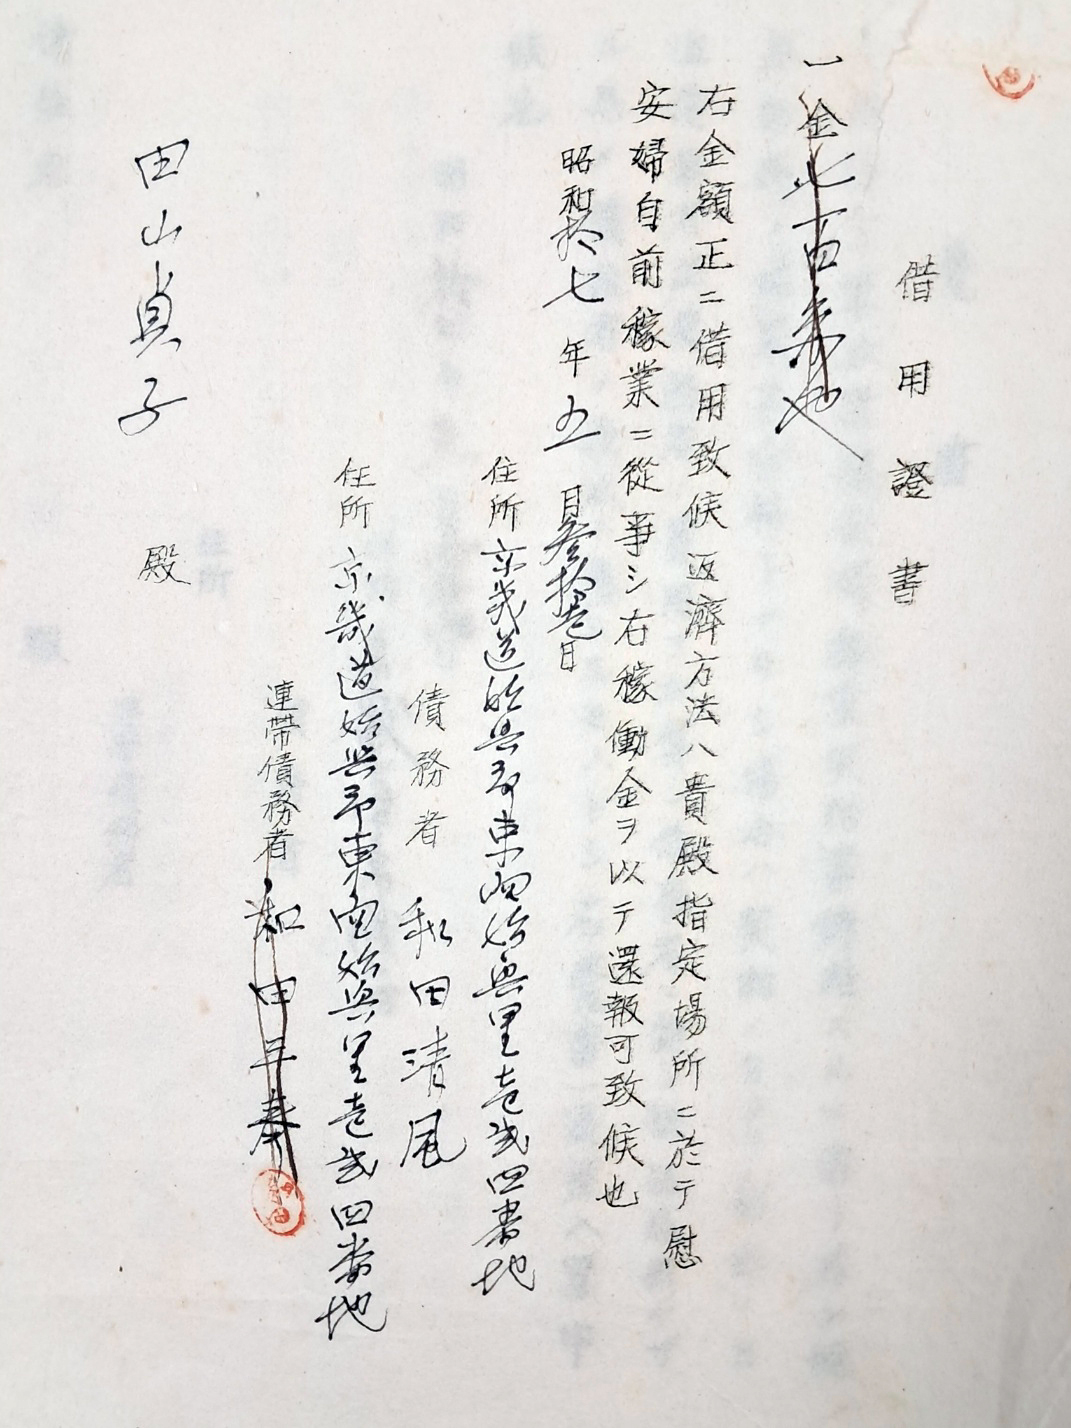 借用證書
一金七百円也
右金額正ニ借用致候返濟方法ハ貴殿指定場所ニ於テ慰
安婦自前稼業ニ從事シ右稼働金ヲ以テ還報可致候也
昭和拾七年五月参拾壱日
住所 京畿道始興郡東面始興里壱弐四番地
債務者 和田清風
住所 京畿道始興郡東面始興里壱弐四番地
連帯債務者 和田
田山貞子 殿